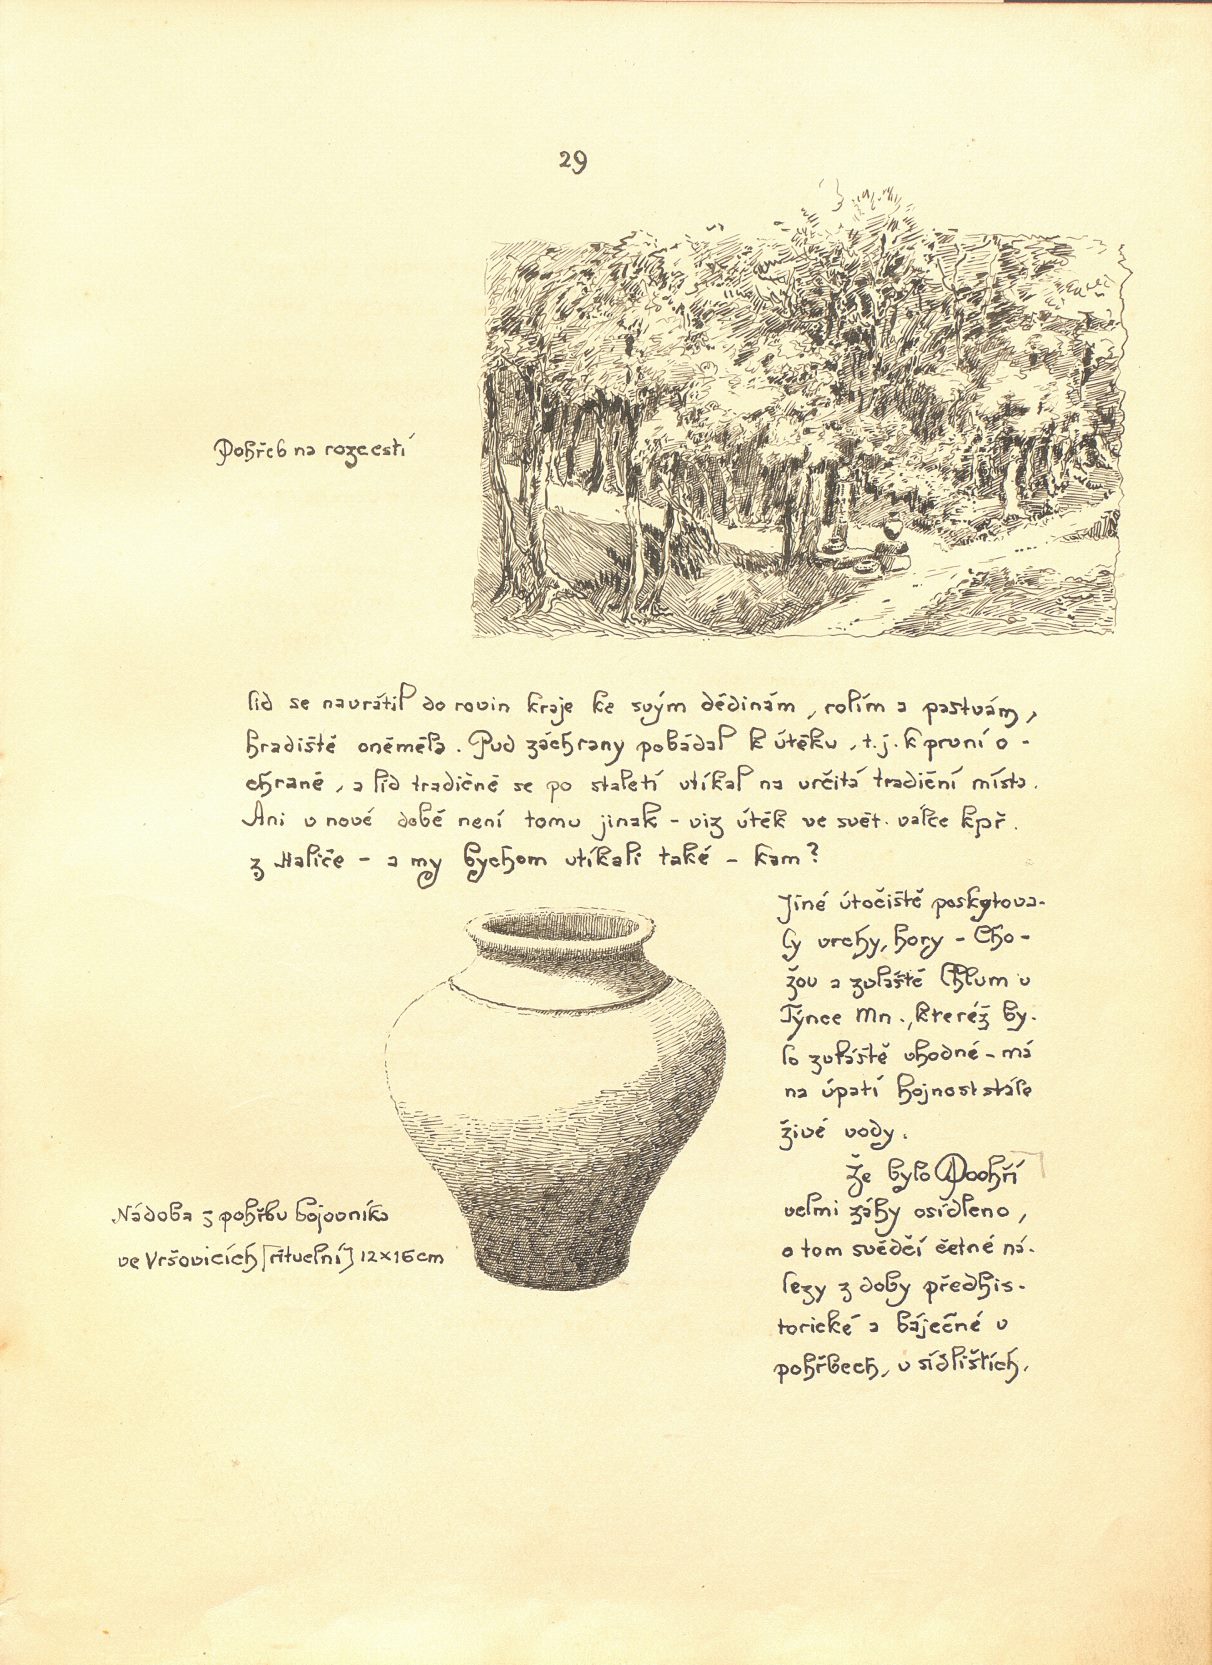 29
Pohřeb na rozcestí
lid se navrátil do rovin kraje ke svým dědinám, rolím a pastvám,
hradiště oněměla. Pud záchrany pobádal k útěku, t.j. k první o-
chraně, a lid tradičně se po staletí utíkal na určitá tradiční místa.
Ani v nové době není tomu jinak - viz útěk ve svět. válce kpř.
z Haliče - a my bychom utíkali také - kam?
Jiné útočiště poskytova-
ly vrchy, hory - Cho-
žov a zvláště Chlum u
Týnce Mn., kteréž by-
lo zvláště vhodné - má
na úpatí hojnost stále
živé vody.
Že bylo Poohří
velmi záhy osídleno,
o tom svědčí četné ná-
lezy z doby předhis-
torické a báječné v
pohřbech, v sídlištích,
Nádoba z pohřbu bojovníka
ve Vršovicích [rituelní] 12x16cm